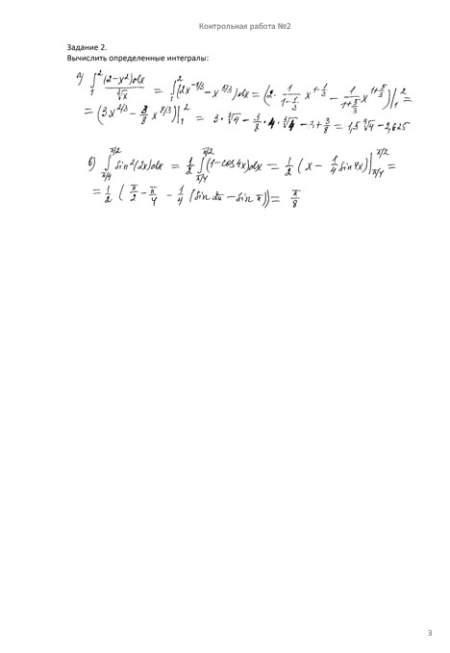 Контрольная работа №2
Задание 2.
Вычислить определенные интегралы:
а) ∫₁² (2-x²)dx/∛x = ∫₁² (2x^(-1/3) - x^(5/3))dx = (2· 1/(1-1/3) x^(1-1/3) - 1/(1+5/3) x^(1+5/3))|₁² =
= (3x^(2/3) - 3/8 x^(8/3))|₁² = 3·∛4 - 3/8·4·∛4 - 3+3/8 = 1,5 ∛4 - 2,625
б) ∫_(π/4)^(π/2) sin²(2x)dx = 1/2 ∫_(π/4)^(π/2) (1-cos4x)dx = 1/2 (x - 1/4 sin4x)|_(π/4)^(π/2) =
= 1/2 (π/2 - π/4 - 1/4 (sin 2π - sin π)) = π/8
3